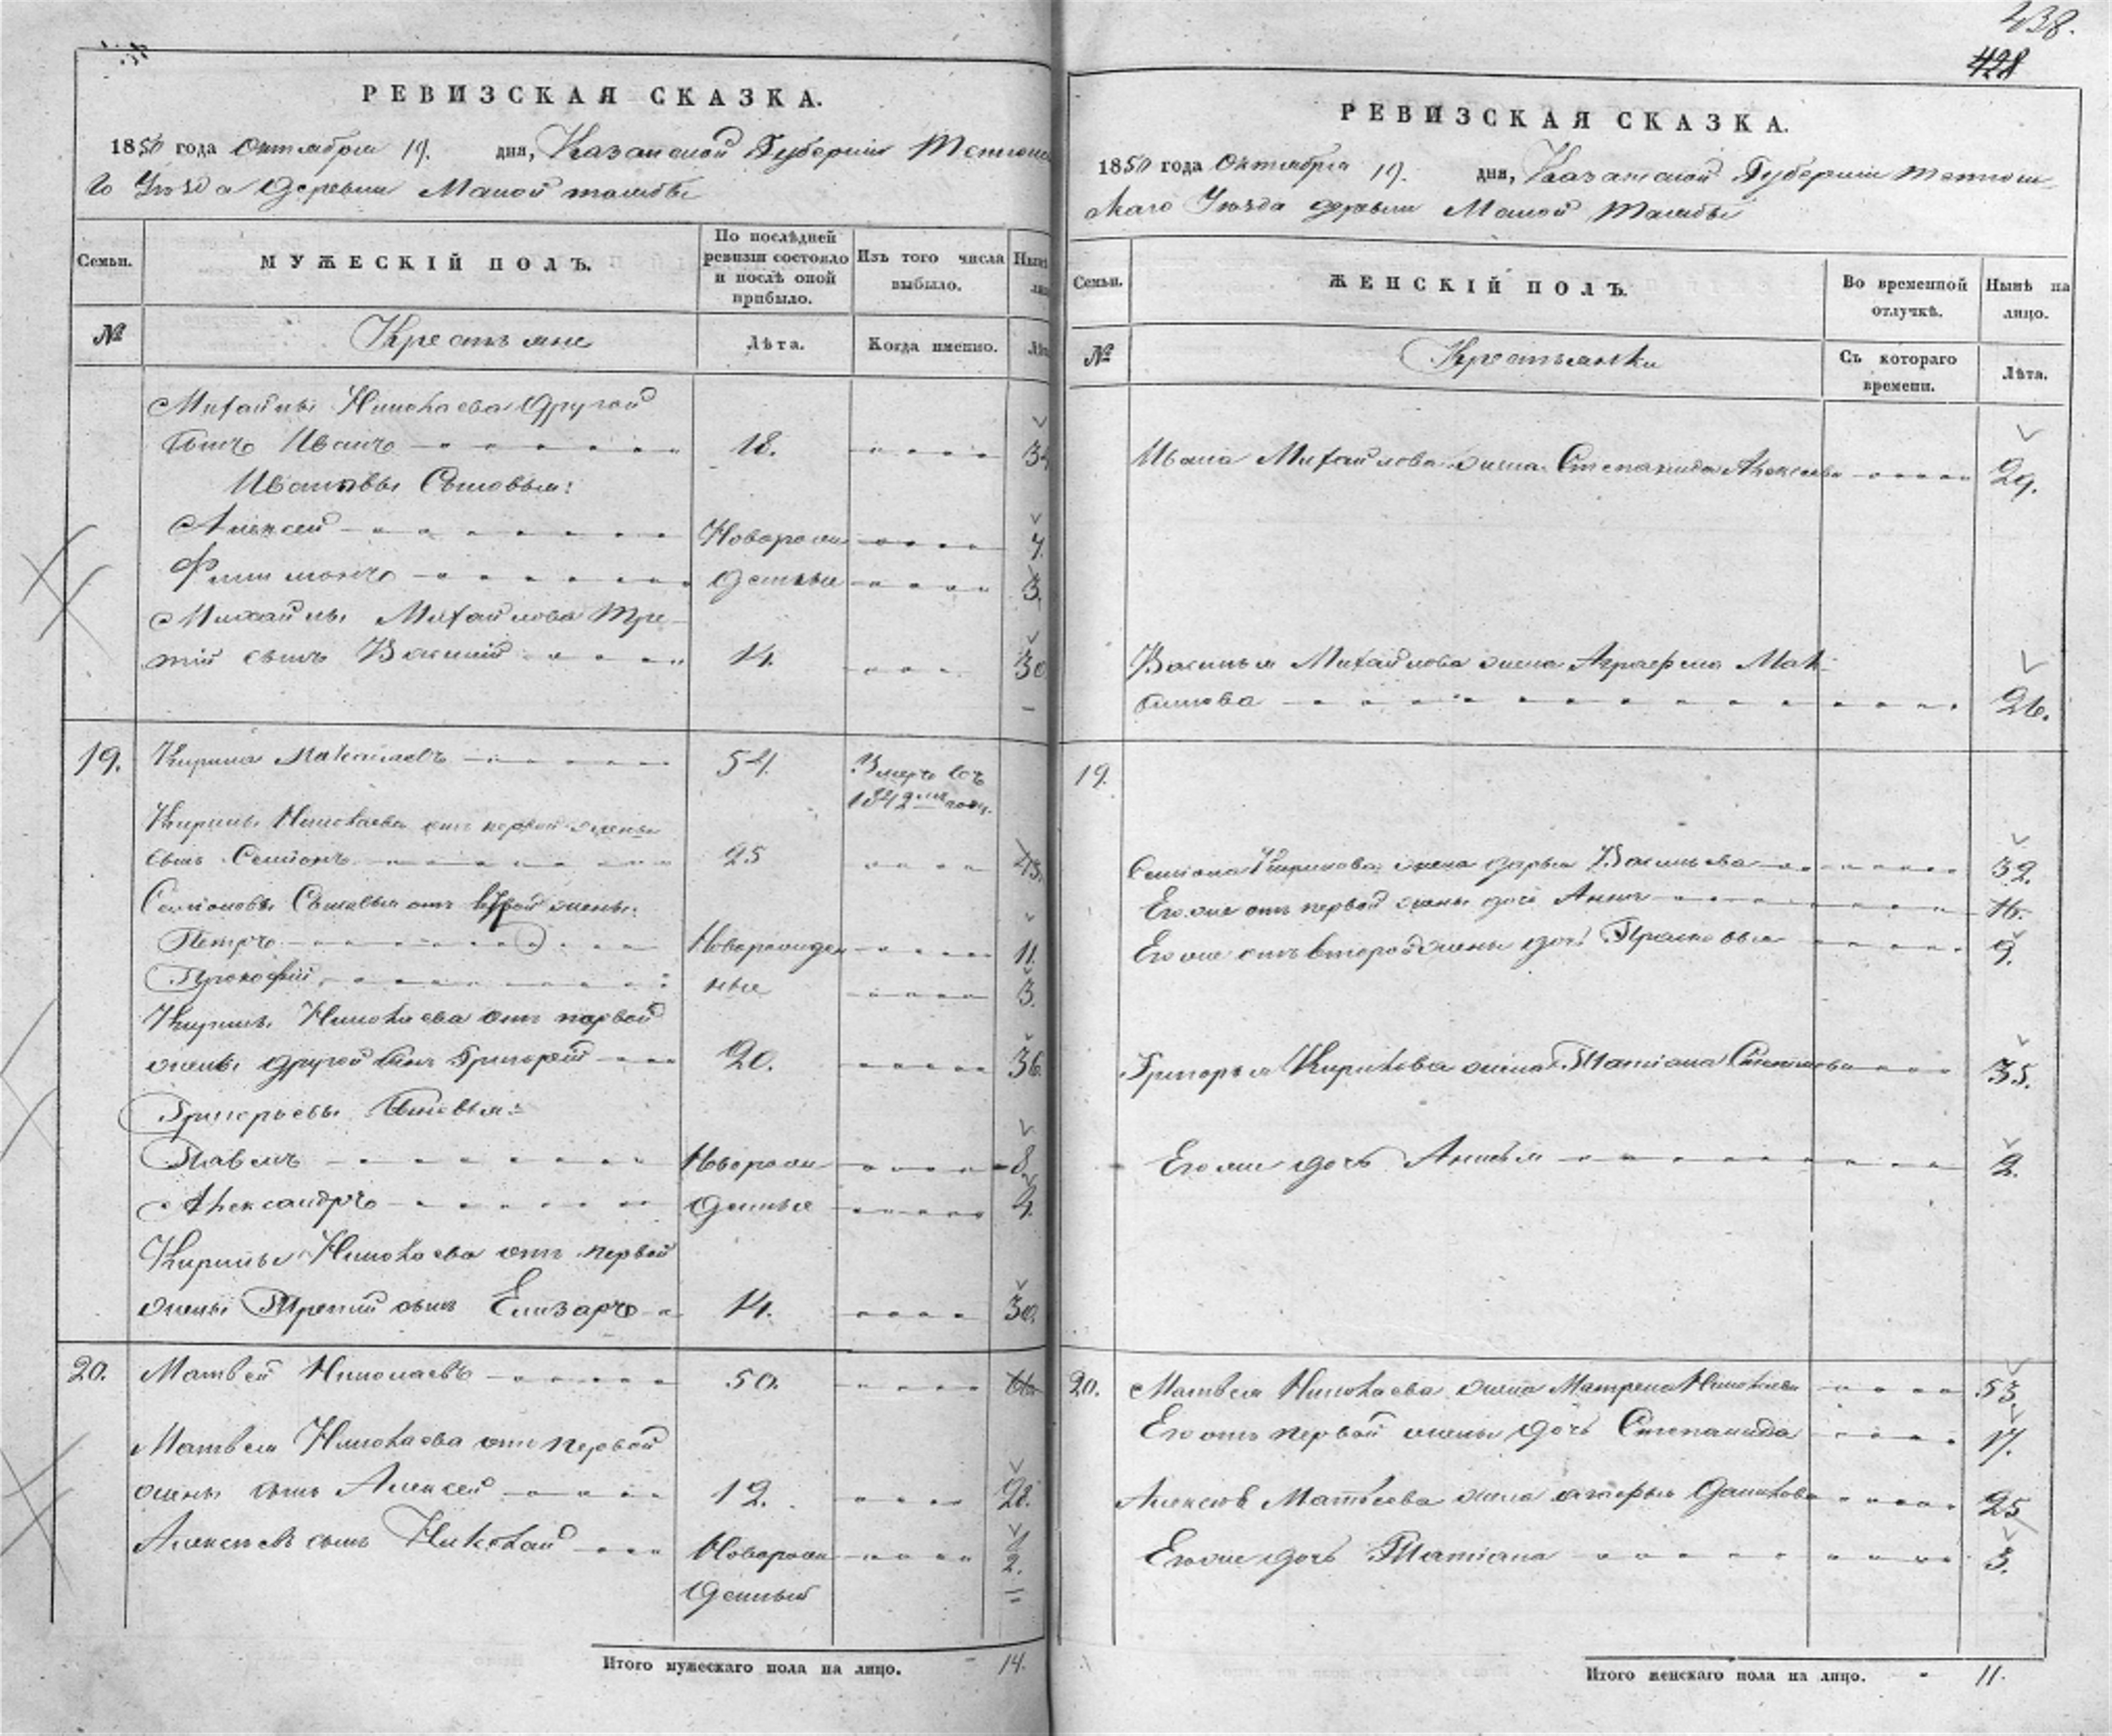 438.
428
РЕВИЗСКАЯ СКАЗКА.
1850 года Октября 19. дня, Казанской Губернии Тетюшс
го Уѣзда деревни Малой
Семьи.
МУЖЕСКІЙ ПОЛЪ.
По послѣдней ревизіи состояло и послѣ оной прибыло.
Изъ того числа выбыло.
№
Крестьяне
Лѣта.
Когда именно.
Михайлы Николаева другой
сынъ Иванъ 18. 34
Ивановы Сыновья:
Алексей Новорож 7.
Филимонъ денные 3.
Михайлы Михайлова Тре
тій сынъ Василій 14. 30
19. Кирила Николаевъ 54. Умеръ въ
1842мъ году.
Кирилы Николаева отъ первой жены
сынъ Семіонъ 25 43.
Семіоновы Сыновья отъ второй жены:
Петръ Новорожден 11.
Прокофій ные 3.
Кирилы Николаева отъ первой
жены другой сынъ Григорей 20. 36.
Григорьевы Сыновья:
Павелъ Новорож 8.
Александръ денные 4.
Кирилы Николаева отъ первой
жены Третій сынъ Елизаръ 14. 30.
20. Матвей Николаевъ 50. 66.
Матвея Николаева отъ первой
жены сынъ Алексей 12. 28.
Алексея сынъ Николай Новорож 2.
денный
Итого мужескаго пола на лицо. 14.
РЕВИЗСКАЯ СКАЗКА.
1850 года Октября 19. дня, Казанской Губерніи Тетюш
скаго Уѣзда деревни Малой
Семьи.
ЖЕНСКІЙ ПОЛЪ.
Во временной отлучкѣ.
Нынѣ на лицо.
№
Крестьянки
Съ котораго времени.
Лѣта.
Ивана Михайлова жена Степанида Алексеева 29.
Василья Михайлова жена Аграфена Мак
симова 26.
19.
Семіона Кирилова жена Дарья Васильева 32.
Его же отъ первой жены дочь Анна 16.
Его же отъ второй жены дочь Прасковья 9.
Григорья Кирилова жена Татіана Степанова 35.
Его же дочь Анисья 2.
20. Матвея Николаева жена Матрена Николаева 53.
Его отъ первой жены дочь Степанида 17.
Алексея Матвеева жена Данилова 25
Его же дочь Татіана 3.
Итого женскаго пола на лицо. 11.